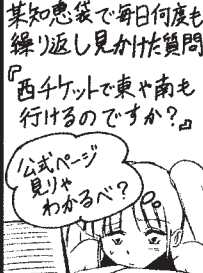 某知恵袋で毎日何度も
繰り返し見かけた質問
『西チケットで東や南も
行けるのですか?』
公式ページ
見りゃ
わかるべ?